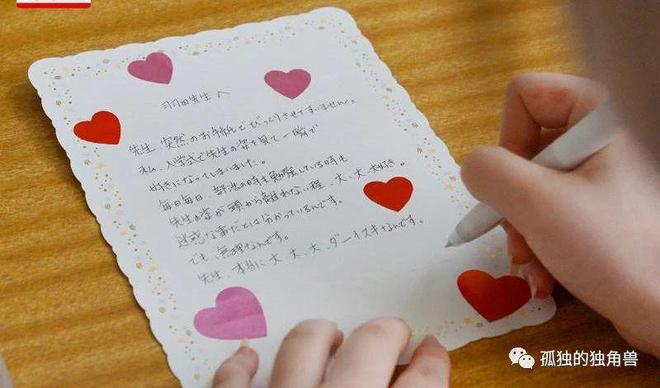 羽田先生へ
先生、突然のお手紙でびっくりさせてすいません。
私、入学式で先生の姿を見て一瞬で
好きになってしまいました。
毎日毎日、部活の時も勉強している時も
先生の姿が頭から離れない程、大、大、大好き。
迷惑な事だとは分かっているんです。
でも、無理なんです。
先生、本当に大、大、大、ダーイスキなんです。
孤独的独角兽